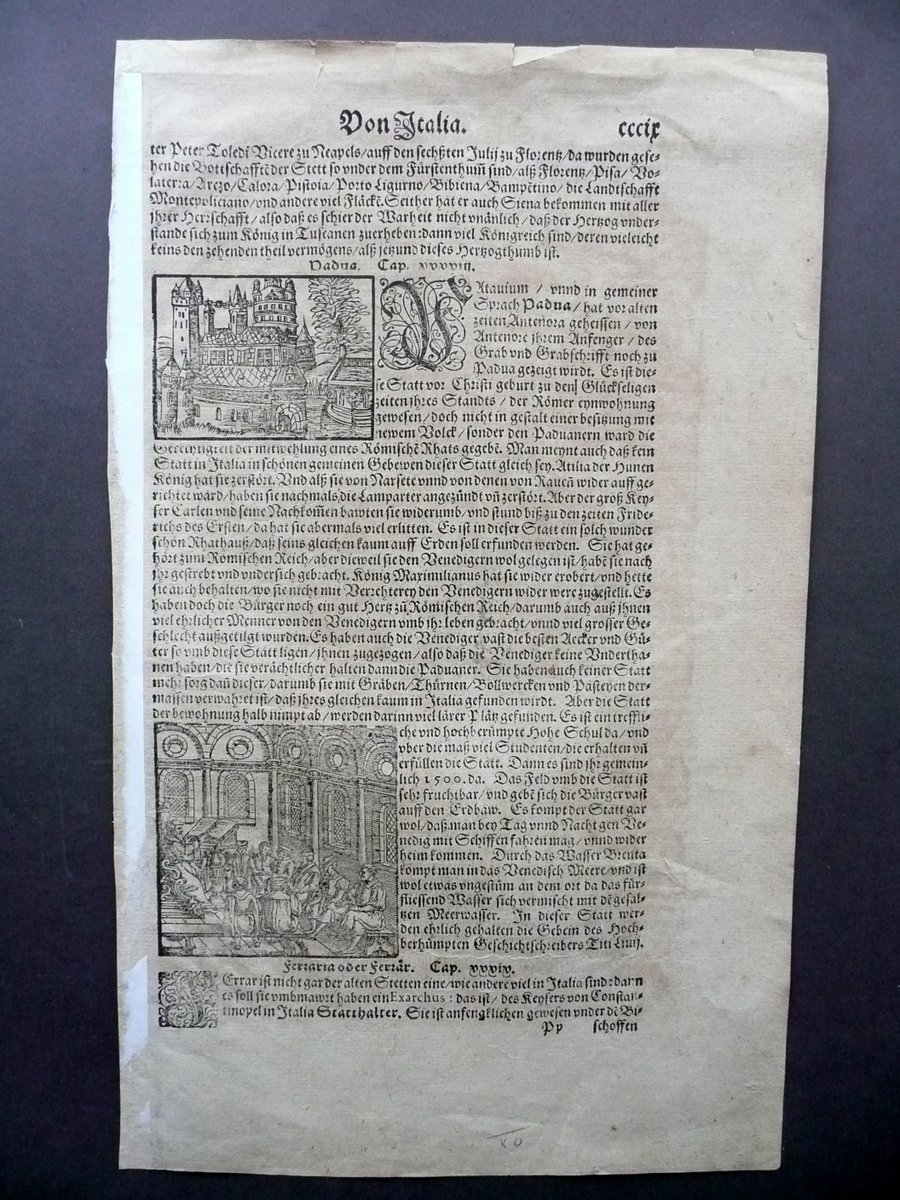 Von Italia. cccix
ter Peter Toledi Vicere zu Neapels/auff den sechßten Julij zu Florentz/da wurden gese-
hen die Bottschafftẽ der Stett so vnder dem Fürstenthum̃ sind/alß Florentz/Pisa/Vo-
laterra/Arezo/Calora/Pistoia/Porto Ligurno/Bibiena/Bampẽtino/die Landtschafft
Montepoliciano/vnd andere viel Fläckẽ. Seither hat er auch Siena bekommen mit aller
jhrer Herrschafft/also daß es schier der Warheit nicht vnänlich/daß der Hertzog vnder-
stande sich zum König in Tuscanen zuerheben:dann viel Königreich sind/deren vieleicht
keins den zehenden theil vermögens/alß jetzund dieses Hertzogthumb ist.
Padua. Cap. xxxviij.
PAtauium / vnnd in gemeiner
Sprach Padua/hat vor alten
zeiten Antenora geheissen / von
Antenore jhrem Anfenger / des
Grab vnd Grabschrifft noch zu
Padua gezeigt wirdt. Es ist die-
se Statt vor Christi geburt zu den Glückseligen
zeiten jhres Standts / der Römer eynwohnung
gewesen/doch nicht in gestalt einer besitzung mit
newem Volck/sonder den Paduanern ward die
Gerechtigkeit der mitwehlung eines Römischẽ Rhats gegebẽ. Man meynt auch daß kein
Statt in Italia in schönen gemeinen Gebewen dieser Statt gleich sey. Atilia der Hunen
König hat sie zerstört. Vnd alß sie von Narsete vnnd von denen von Rauen̄ wider auff ge-
richtet ward/haben sie nachmals die Lamparter angezündt vñ zerstört. Aber der groß Key-
ser Carlen vnd seine Nachkom̃en bawten sie widerumb/vnd stund biß zu den zeiten Fride-
richs des Ersten/da hat sie abermals viel erlitten. Es ist in dieser Statt ein solch wunder
schön Rhathauß/daß seins gleichen kaum auff Erden soll erfunden werden. Sie hat ge-
hört zum Römischen Reich/aber dieweil sie den Venedigern wol gelegen ist/habẽ sie nach
jhr gestrebt vnd vndersich gebracht. König Maximilianus hat sie wider erobert/vnd hette
sie auch behalten/wo sie nicht mit Verrehterey den Venedigern wider were zugestellt. Es
haben doch die Bürger noch ein gut Hertz zũ Römischen Reich/darumb auch auß jhnen
viel ehrlicher Menner von den Venedigern vmb jhr leben gebracht/vnnd viel grosser Ge-
schlecht außgetilgt wurden. Es haben auch die Venediger vast die besten Aecker vnd Gü-
ter so vmb diese Statt ligen/jhnen zugezogen/also daß die Venediger keine Vndertha-
nen haben/die sie verächtlicher halten dann die Paduaner. Sie haben auch keiner Statt
mehr sorg dan̄ dieser/darumb sie mit Gräben/Thürnen/Bollwercken vnd Pasteyen der-
massen verwahret ist/daß jhres gleichen kaum in Italia gefunden wirdt. Aber die Statt
der bewohnung halb nimpt ab/werden darinn viel lärer Plätz gefunden. Es ist ein treffli-
che vnd hochberümpte Hohe Schul da/vnd
vber die maß viel Studenten/die erhalten vñ
erfüllen die Statt. Dann es sind jhr gemein-
lich 1500. da. Das Feld vmb die Statt ist
sehr fruchtbar/vnd gebẽ sich die Bürger vast
auff den Erdbaw. Es kompt der Statt gar
wol/daß man bey Tag vnnd Nacht gen Ve-
nedig mit Schiffen fahren mag/vnnd wider
heim kommen. Durch das Wasser Brenta
kompt man in das Venedisch Meere/vnd ist
wol etwas vngestüm an dem ort da das für-
fliessend Wasser sich vermischt mit dẽ gesal-
tzen Meerwasser. In dieser Statt wer-
den ehrlich gehalten die Gebein des Hoch-
berhümpten Geschichtschreibers Titi Liuij.
Ferraria oder Ferrär. Cap. xxxix.
FErrar ist nicht gar der alten Stetten eine/wie andere viel in Italia sind:dann
es soll sie vmbmawrt haben ein Exarchus: das ist/des Keysers von Constan-
tinopel in Italia Statthalter. Sie ist anfengklichen gewesen vnder dẽ Bi-
Pp schoffen